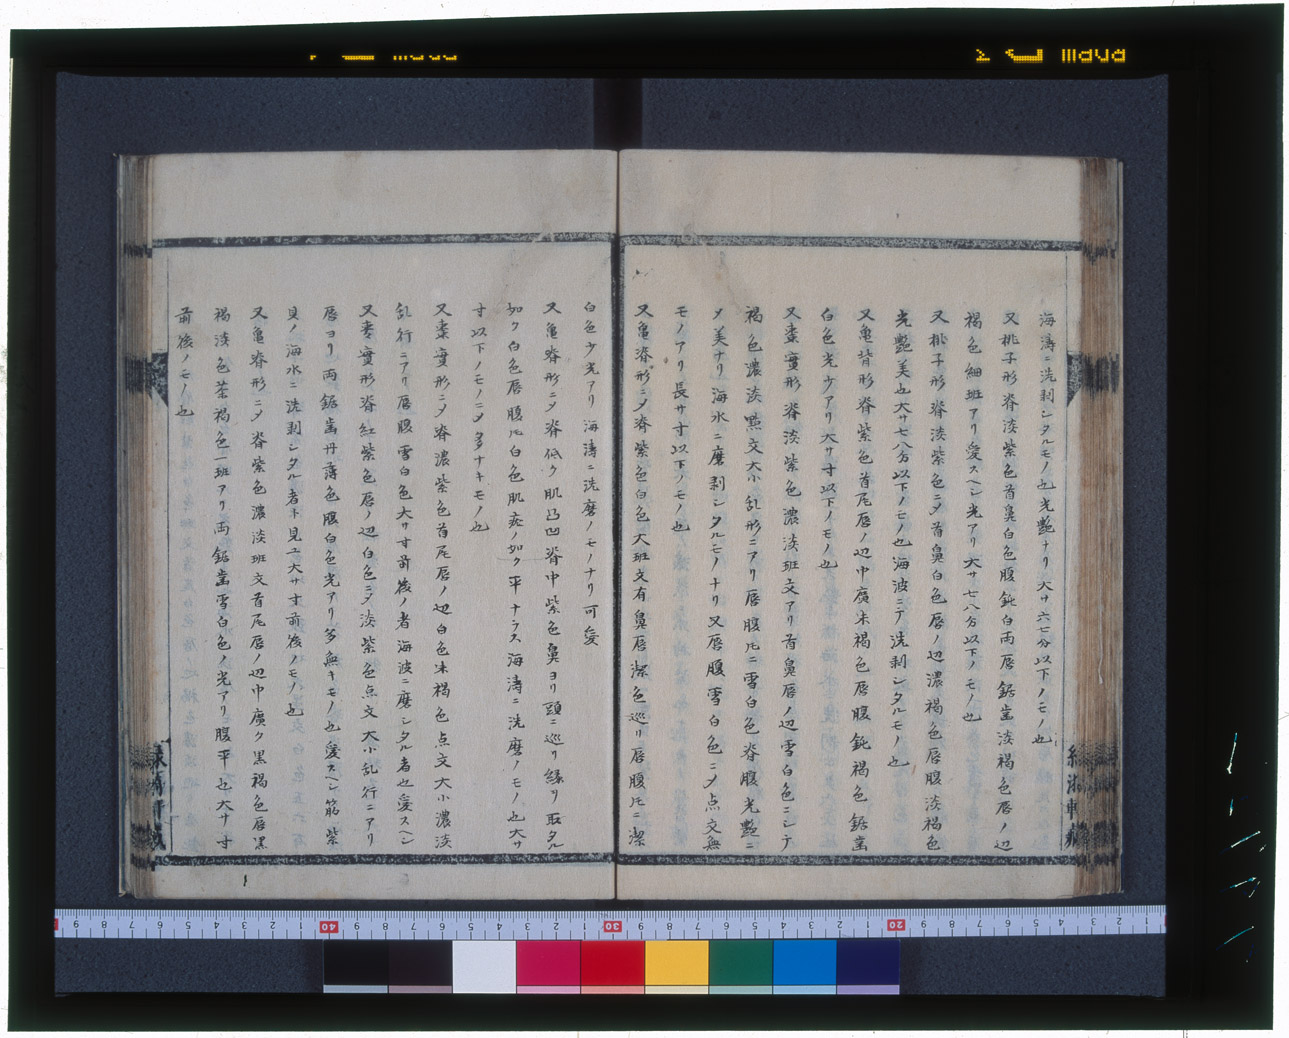 海濤ニ洗剥シタルモノ也光艶ナリ大サ六七分以下ノモノ也
又桃子形脊淡紫色首鼻白色腹鈍白両唇鋸歯淡褐色唇ノ辺
褐色細班アリ愛スヘシ光アリ大サ七八分以下ノモノ也
又桃子形脊淡紫色ニメ首鼻白色唇ノ辺濃褐色唇腹淡褐色
光艶美也大サ七八分以下ノモノ也海波ニテ洗剥シタルモノ也
又亀背形脊紫色首尾唇ノ辺巾廣朱褐色唇腹鈍褐色鋸歯
白色光少アリ大サ寸以下ノモノ也
又棗實形脊淡紫色濃淡班文アリ首鼻唇ノ辺雪白色ニシテ
褐色濃淡點文大小乱形ニアリ唇腹ルニ雪白色脊腹光艶ニ
メ美ナリ海水ニ磨剥シタルモノナリ又唇腹雪白色ニメ点文無
モノアリ長サ寸以下ノモノ也
又亀脊形ニメ脊紫色白色大班文有鼻唇潔色巡リ唇腹圧ニ潔
白色少光アリ海濤ニ洗磨ノモノナリ可愛
又亀脊形ニメ脊低ク肌凸凹脊中紫色鼻ヨリ頭ニ巡リ縁リ取タル
如ク白色唇腹圧白色肌疣ノ如ク平ナラス海濤ニ洗磨ノモノ也大サ
寸以下ノモノニメ多ナキモノ也
又棗實形ニメ脊濃紫色首尾唇ノ辺白色朱褐色点文大小濃淡
乱行ニアリ唇腹雪白色大サ寸前後ノ者海波ニ磨シタル者也愛スヘシ
又棗實形脊紅紫色唇ノ辺白色ニメ淡紫色点文大小乱行ニアリ
唇ヨリ両鋸歯丹薄色腹白色光アリ多無キモノ也愛スヘシ筋紫
貝ノ海水ニ洗剥シタル者ト見エ大サ寸前後ノモノ也
又亀脊形ニメ脊紫色濃淡班文首尾唇ノ辺巾廣ク黒褐色唇黒
褐淡色茶褐色ノ班アリ両鋸歯雪白色ノ光アリ腹平也大サ寸
前後ノモノ也